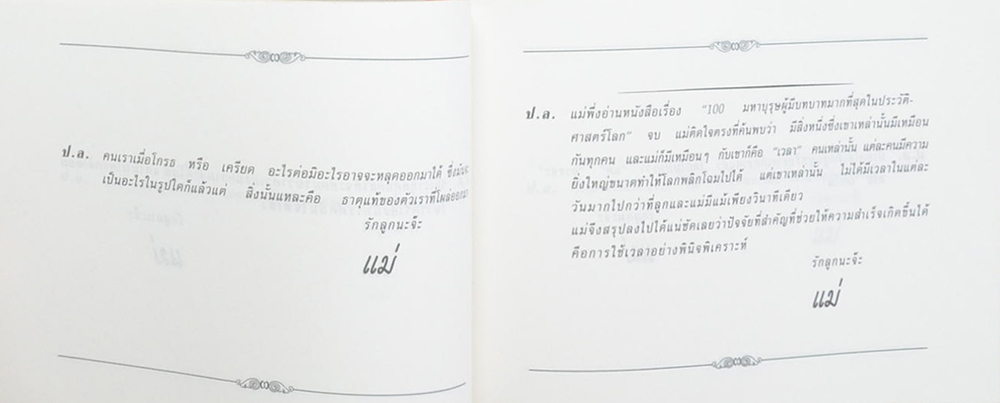 ป.ล. คนเราเมื่อโกรธ หรือ เครียด อะไรต่อมิอะไรอาจจะหลุดออกมาได้
เป็นอะไรในรูปใดก็แล้วแต่ สิ่งนั้นแหละคือ ธาตุแท้ของตัวเราที่โผล่ออกมา
รักลูกนะจ๊ะ
แม่
ป.ล. แม่พึ่งอ่านหนังสือเรื่อง "100 มหาบุรุษผู้มีบทบาทมากที่สุดในประวัติ-
ศาสตร์โลก" จบ แม่ติดใจตรงที่ค้นพบว่า มีสิ่งหนึ่งซึ่งเขาเหล่านั้นมีเหมือน
กันทุกคน และแม่ก็มีเหมือนๆ กับเขาก็คือ "เวลา" คนเหล่านั้น แต่ละคนมีความ
ยิ่งใหญ่ขนาดทำให้โลกพลิกโฉมไปได้ แต่เขาเหล่านั้น ไม่ได้มีเวลาในแต่ละ
วันมากไปกว่าที่ลูกและแม่มีแม้เพียงวินาทีเดียว
แม่จึงสรุปลงไปได้แน่ชัดเลยว่าปัจจัยที่สำคัญที่ช่วยให้ความสำเร็จเกิดขึ้นได้
คือการใช้เวลาอย่างพินิจพิเคราะห์
รักลูกนะจ๊ะ
แม่